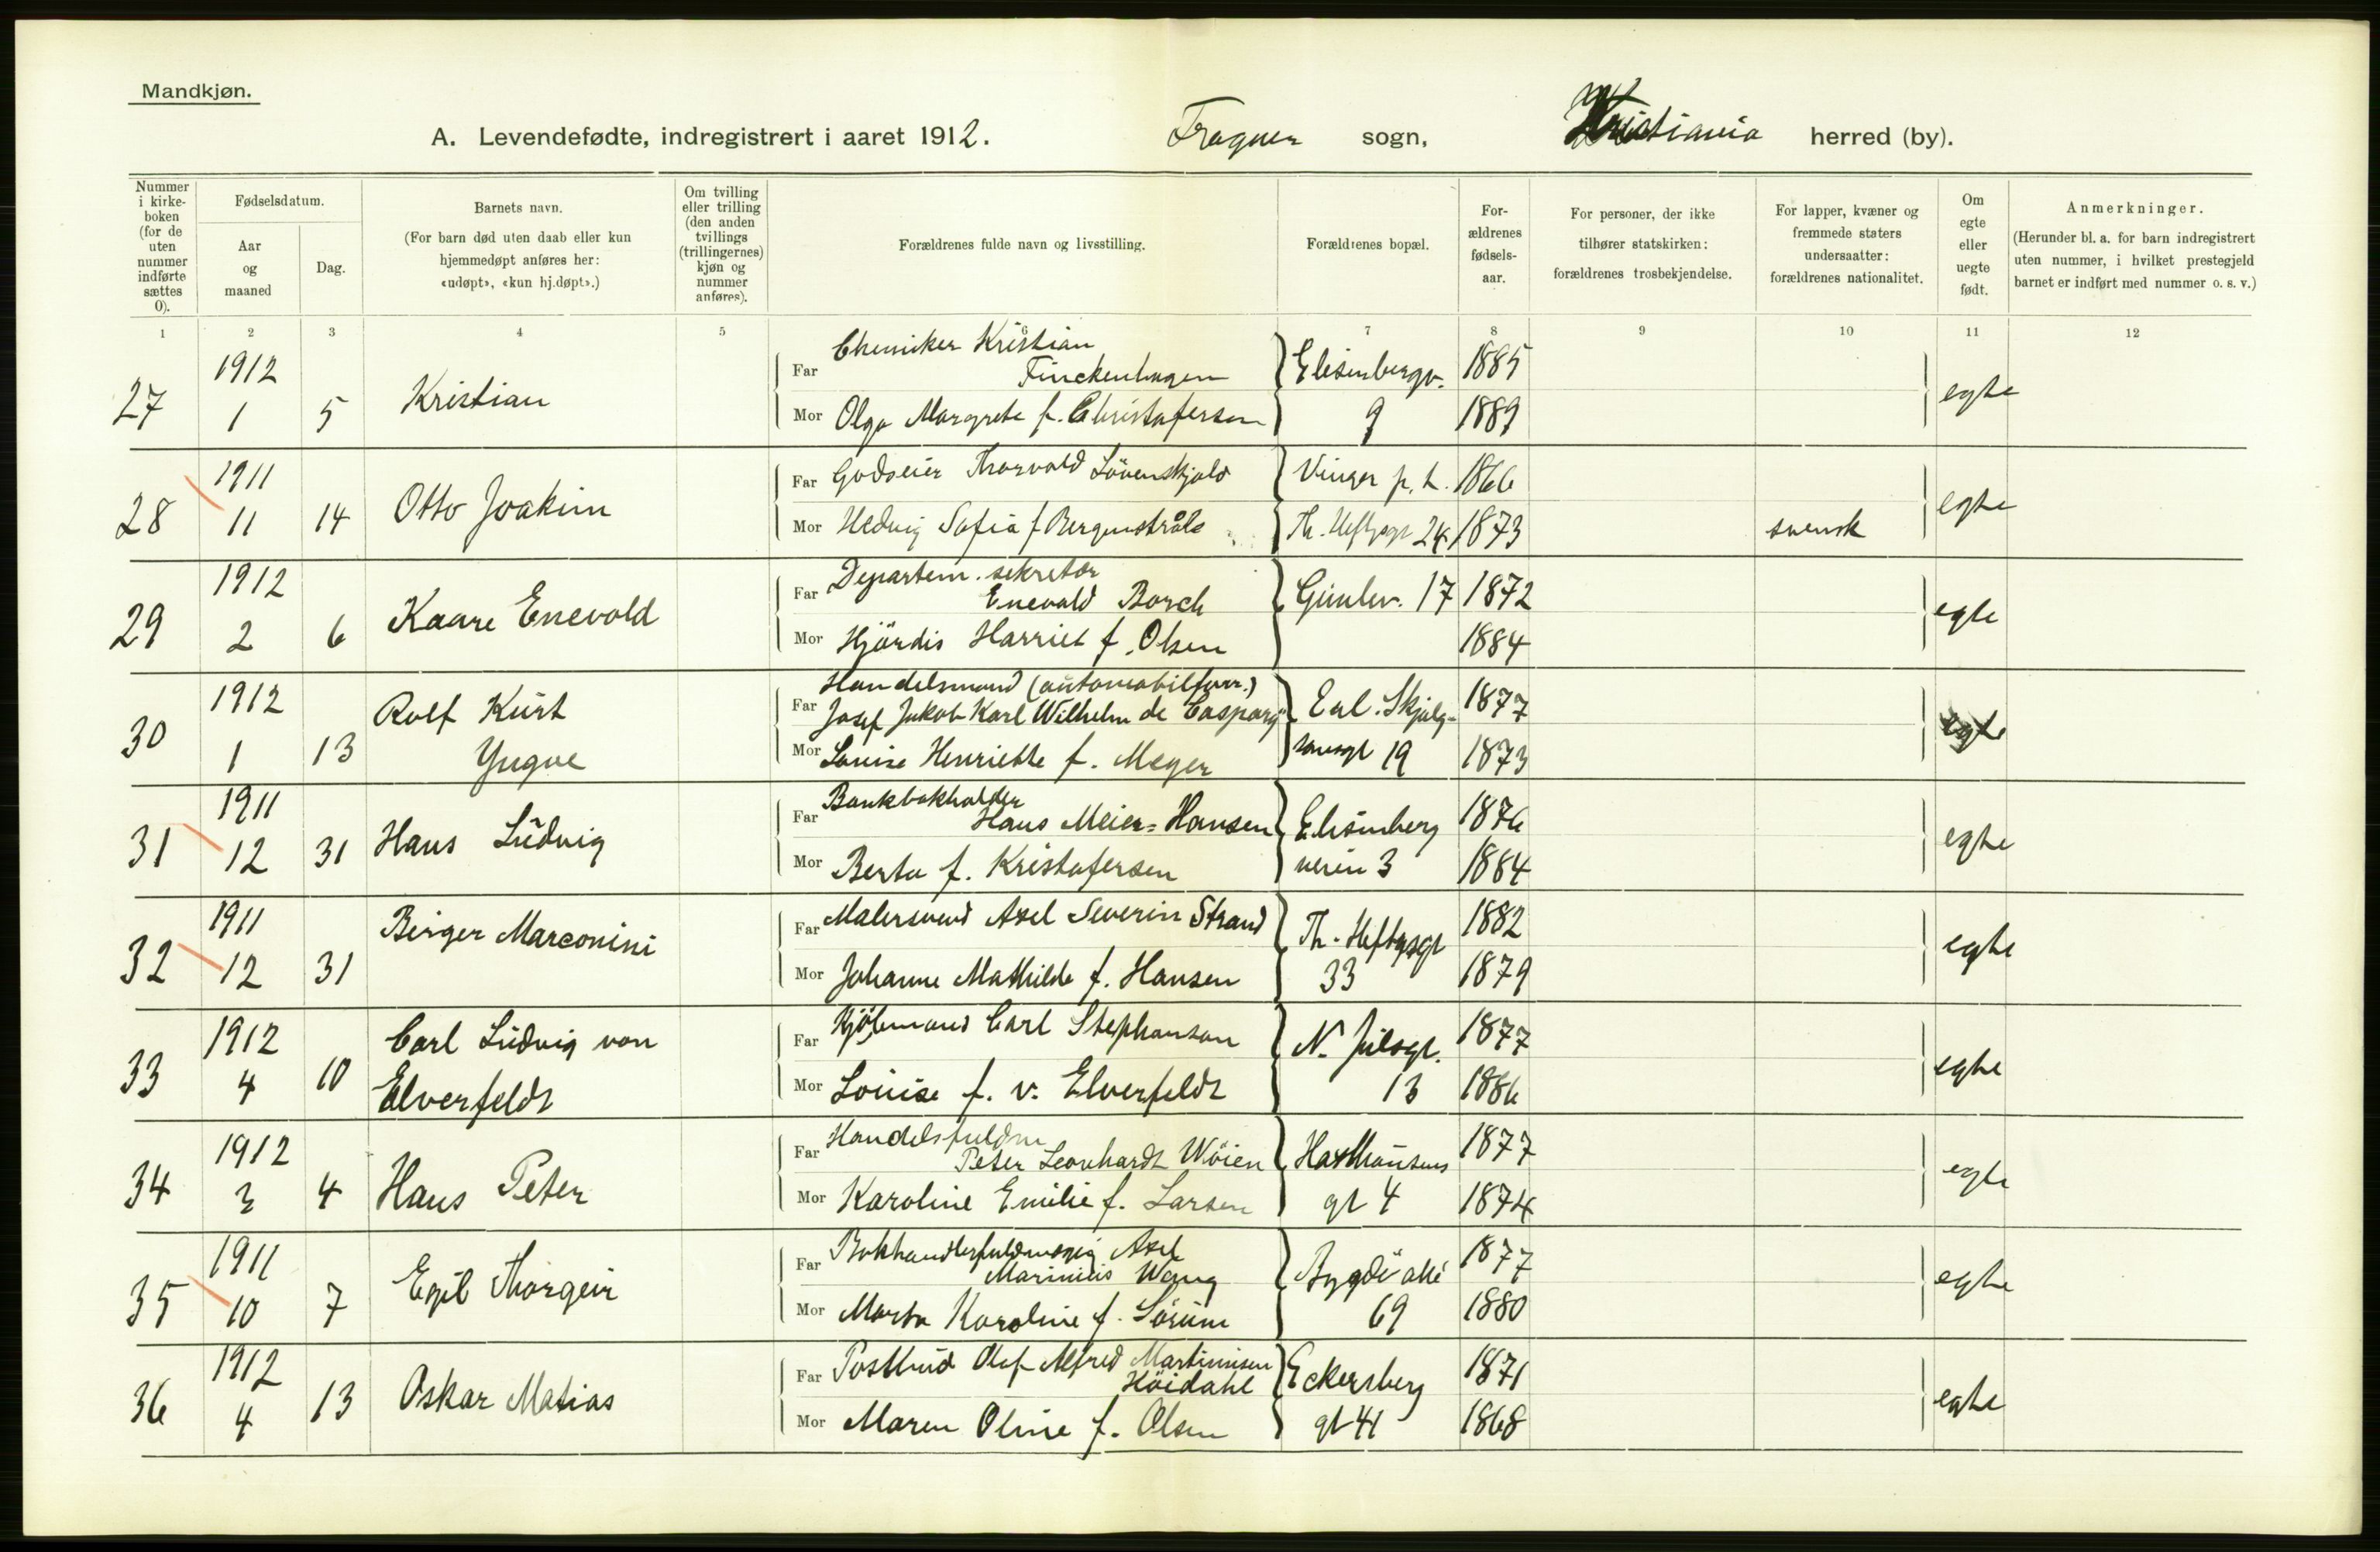 Mandkjøn.
A. Levendefødte, indregistrert i aaret 1912. Frogner sogn, Kristiania herred (by).
Nummer i kirkeboken (for de uten nummer indførte sættes 0).
Fødselsdatum.
Aar og maaned
Dag.
Barnets navn.
(For barn død uten daab eller kun hjemmedøpt anføres her: «udøpt», «kun hj.døpt».)
Om tvilling eller trilling (den anden tvillings (trillingernes) kjøn og nummer anføres).
Forældrenes fulde navn og livsstilling.
Forældrenes bopæl.
Forældrenes fødselsaar.
For personer, der ikke tilhører statskirken: forældrenes trosbekjendelse.
For lapper, kvæner og fremmede staters undersaatter: forældrenes nationalitet.
Om egte eller uegte født.
Anmerkninger.
(Herunder bl. a. for barn indregistrert uten nummer, i hvilket prestegjeld barnet er indført med nummer o. s. v.)
1 2 3 4 5 6 7 8 9 10 11 12
27 1912 1 5 Kristian
Far Chemiker Kristian Finckenhagen Elisenbergv. 1885
Mor Olga Margrete f. Christofersen 9 1889 egte
28 1911 11 14 Otto Joakim
Far Godseier Thorvald Lövenskjold Vinger p. t. 1866
Mor Hedvig Sofia f Bergenstråle Th. Heftyesgt 24 1873 svensk egte
29 1912 2 6 Kaare Enevold
Far Departem. sekretær Enevald Borch Gimlev. 17 1872
Mor Hjördis Harriet f. Olsen 1884 egte
30 1912 1 13 Rolf Kurt Yngve
Far Handelsmand (automobilforr.) Josef Jakob Karl Wilhelm de Caspary Erl. Skjalg- 1877
Mor Louise Henriette f. Meyer sonsgt 19 1873 egte
31 1911 12 31 Hans Ludvig
Far Bankbokholder Hans Meier-Hansen Elisenberg 1876
Mor Berta f. Kristofersen veien 3 1884 egte
32 1911 12 31 Birger Marconini
Far Malersvend Axel Severin Strand Th. Heftyesgt 1882
Mor Johanne Mathilde f. Hansen 33 1879 egte
33 1912 4 10 Carl Ludvig von Elverfeldt
Far Kjöbmand Carl Stephanson N. Julsgt. 1877
Mor Louise f. v. Elverfeldt 13 1886 egte
34 1912 3 4 Hans Peter
Far Handelsfuldm Peter Leonhardt Wöien Haxthausens 1877
Mor Karoline Emilie f. Larsen gt 4 1874 egte
35 1911 10 7 Egil Thorgeir
Far Bokhandlerfuldmægtig Axel Marinius Wang Bygdö allé 1877
Mor Marta Karoline f. Sörum 69 1880 egte
36 1912 4 13 Oskar Matias
Far Postbud Olaf Alfred Martinusen Höidahl Eckersberg 1871
Mor Maren Oline f. Olsen gt 41 1868 egte